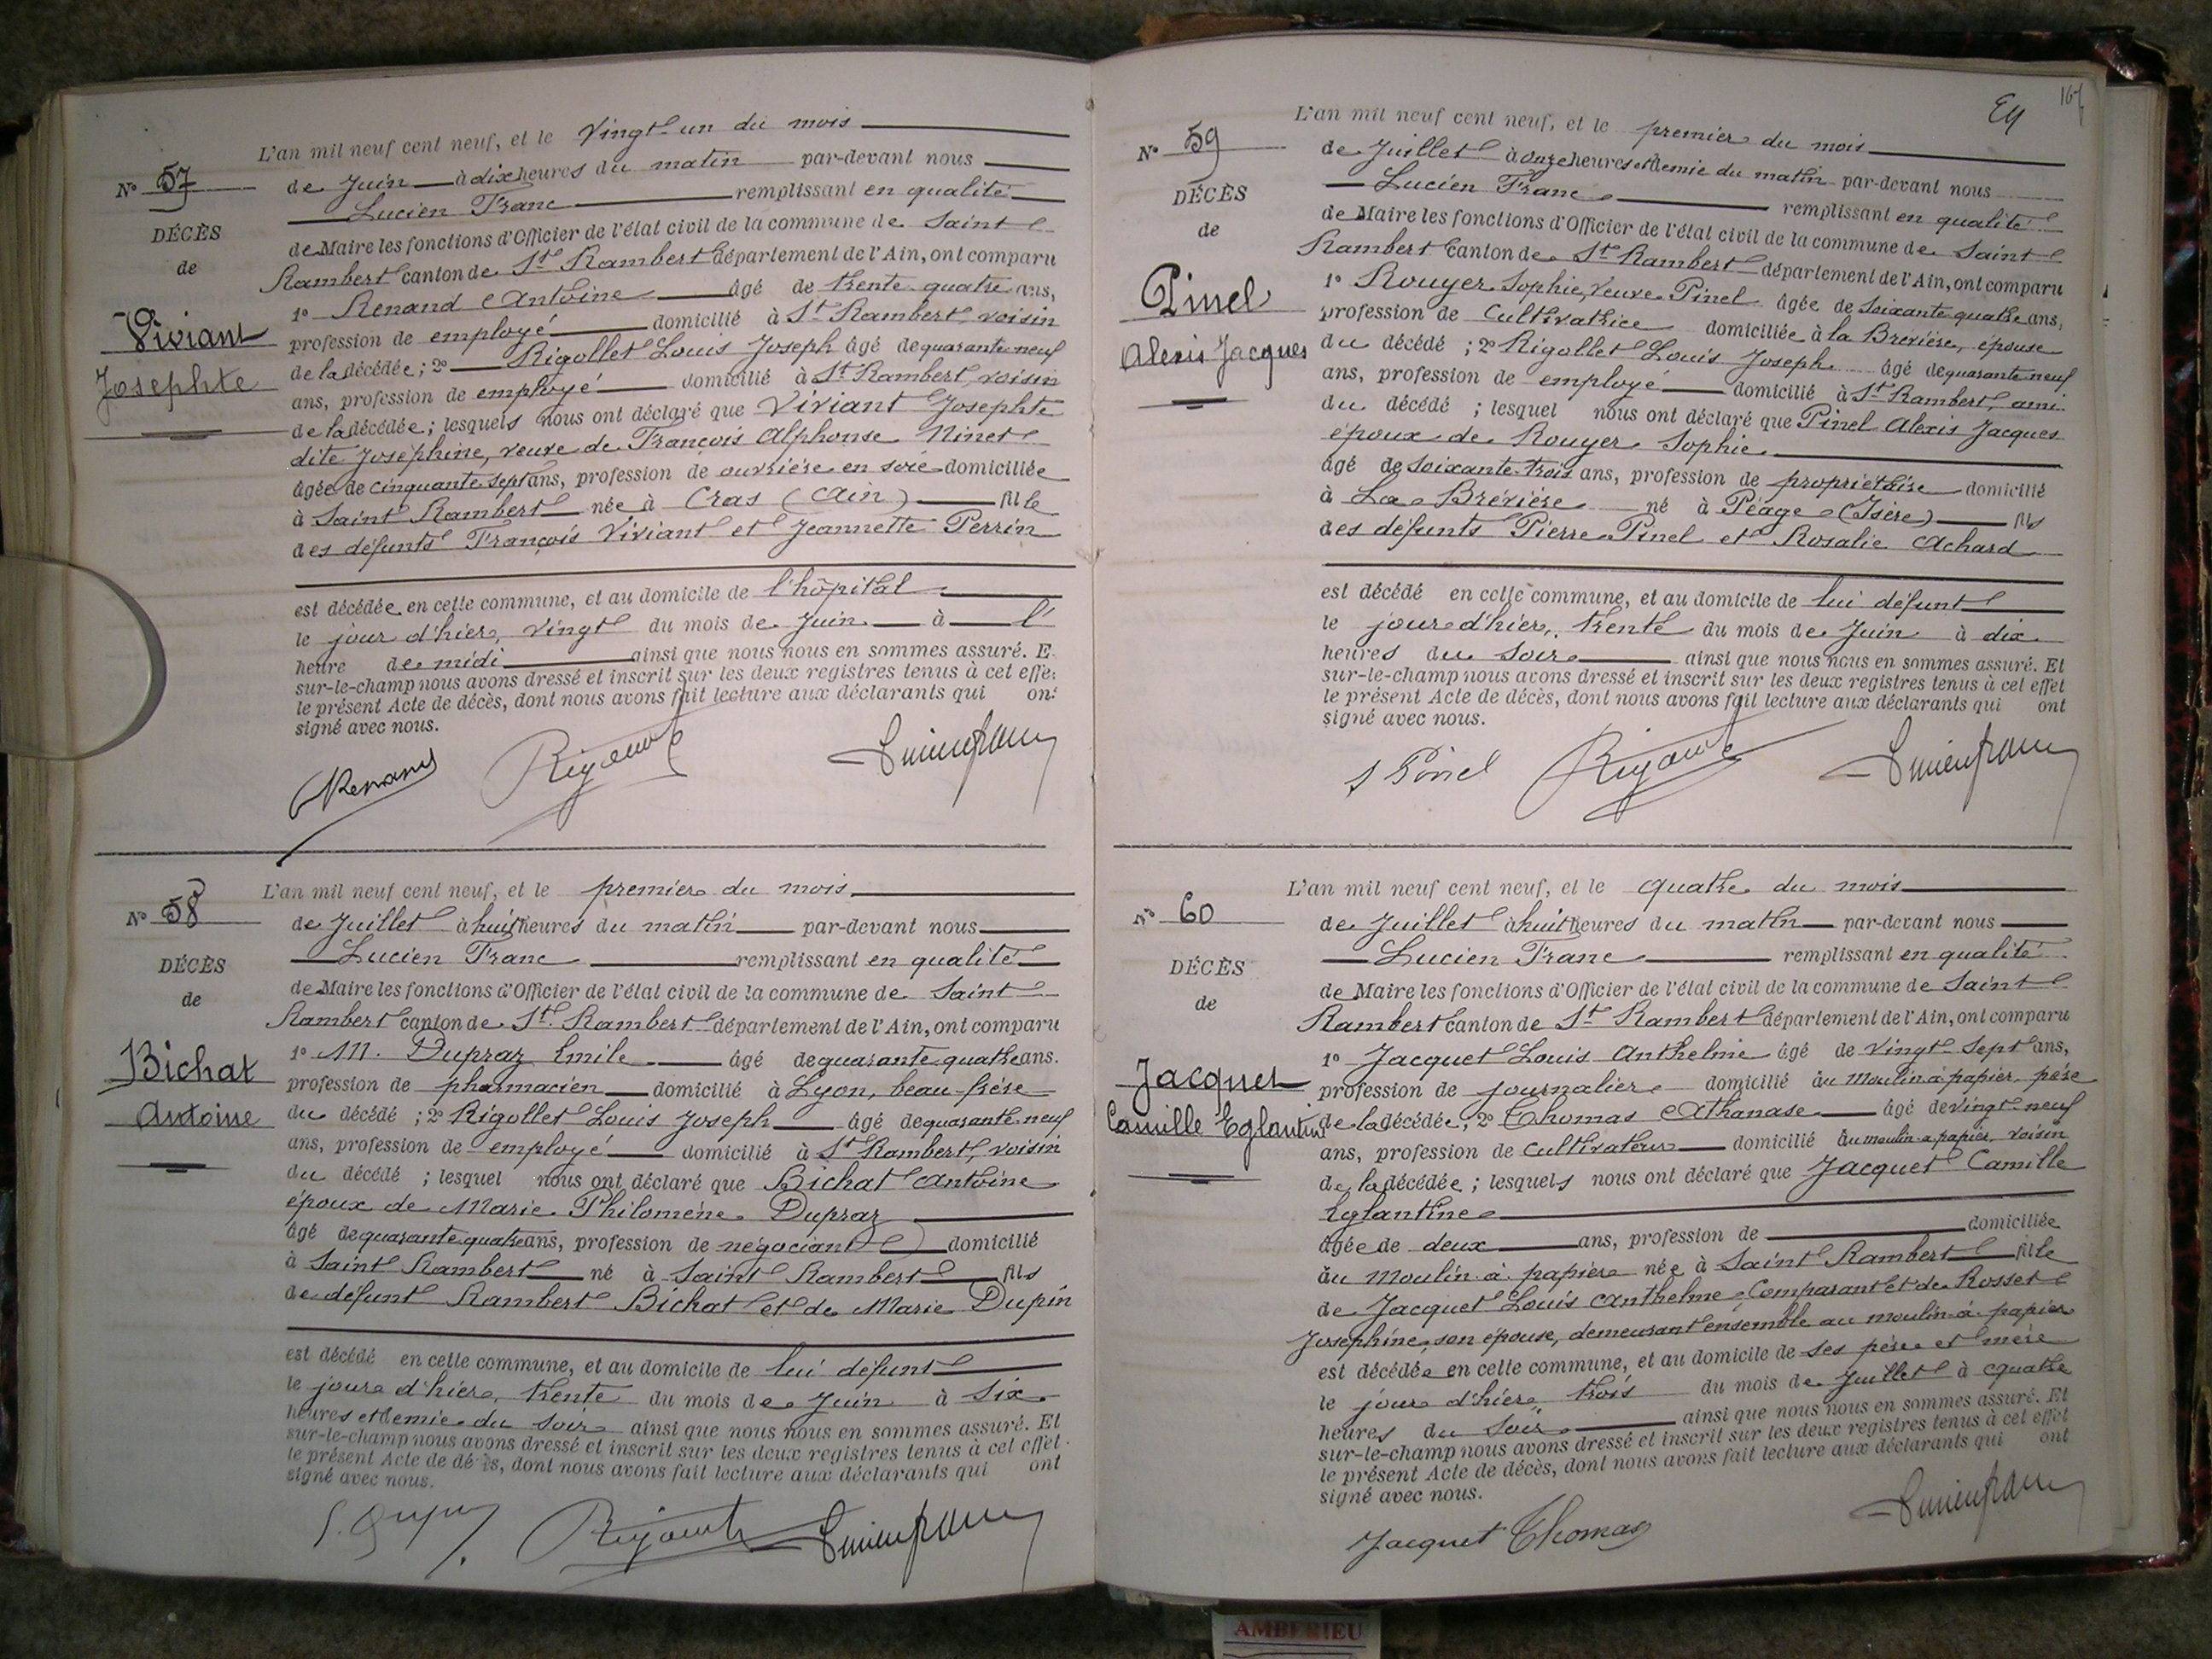 L'an mil neuf cent neuf, et le vingt-un du mois
N° 57
de Juin à dix heures du matin par-devant nous
Lucien Franc remplissant en qualité
DÉCÈS
de Maire les fonctions d'Officier de l'état civil de la commune de Saint
de
Rambert canton de St Rambert département de l'Ain, ont comparu
1° Renand Antoine âgé de trente-quatre ans,
Viviant
profession de employé domicilié à St Rambert, voisin
Josephte
de la décédée; 2° Rigollet Louis Joseph âgé de quarante-neuf
ans, profession de employé domicilié à St Rambert, voisin
de la décédée; lesquels nous ont déclaré que Viviant Josephte
dite Joséphine, veuve de François Alphonse Ninet
âgée de cinquante sept ans, profession de ouvrière en soie domiciliée
à Saint Rambert née à Cras (Ain) fille
des défunts François Viviant et Jeannette Perrin
est décédée en cette commune, et au domicile de l'hôpital
le jour d'hier, vingt du mois de Juin à l'
heure de midi ainsi que nous nous en sommes assuré. E
sur-le-champ nous avons dressé et inscrit sur les deux registres tenus à cet effe
le présent Acte de décès, dont nous avons fait lecture aux déclarants qui ont
signé avec nous.
Renand
L'an mil neuf cent neuf, et le premier du mois
N° 58
de Juillet à huit heures du matin par-devant nous
Lucien Franc remplissant en qualité
DÉCÈS
de Maire les fonctions d'Officier de l'état civil de la commune de Saint
de
Rambert canton de St Rambert département de l'Ain, ont comparu
1° M. Dupraz Emile âgé de quarante-quatre ans.
Bichat
profession de pharmacien domicilié à Lyon, beau-frère
Antoine
du décédé; 2° Rigollet Louis Joseph âgé de quarante-neuf
ans, profession de employé domicilié à St Rambert, voisin
du décédé; lesquel nous ont déclaré que Bichat Antoine
époux de Marie Philomène Dupraz
âgé de quarante quatre ans, profession de négociant domicilié
à Saint Rambert né à Saint Rambert fils
de défunt Rambert Bichat et de Marie Dupin
est décédé en cette commune, et au domicile de lui défunt
le jour d'hier, trente du mois de Juin à six
heures et demie du soir ainsi que nous nous en sommes assuré. Et
sur-le-champ nous avons dressé et inscrit sur les deux registres tenus à cet effet
le présent Acte de décès, dont nous avons fait lecture aux déclarants qui ont
signé avec nous.
L'an mil neuf cent neuf, et le premier du mois
N° 59
de Juillet à onze heures et demie du matin par-devant nous
Lucien Franc remplissant en qualité
DÉCÈS
de Maire les fonctions d'Officier de l'état civil de la commune de Saint
de
Rambert Canton de St Rambert département de l'Ain, ont comparu
1° Rouyer Sophie, veuve Pinel âgée de soixante quatre ans,
Pinel
profession de cultivatrice domiciliée à la Brévière, épouse
Alexis Jacques
du décédé; 2° Rigollet Louis Joseph âgé de quarante-neuf
ans, profession de employé domicilié à St Rambert, ami
du décédé; lesquel nous ont déclaré que Pinel Alexis Jacques
époux de Rouyer Sophie
âgé de soixante-trois ans, profession de propriétaire domicilié
à La Brévière né à Péage (Isère) fils
des défunts Pierre Pinel et Rosalie Achard
est décédé en cette commune, et au domicile de lui défunt
le jour d'hier, trente du mois de Juin à dix
heures du soir ainsi que nous nous en sommes assuré. Et
sur-le-champ nous avons dressé et inscrit sur les deux registres tenus à cet effet
le présent Acte de décès, dont nous avons fait lecture aux déclarants qui ont
signé avec nous.
S Pinel
L'an mil neuf cent neuf, et le quatre du mois
N° 60
de Juillet à huit heures du matin par-devant nous
Lucien Franc remplissant en qualité
DÉCÈS
de Maire les fonctions d'Officier de l'état civil de la commune de Saint
de
Rambert canton de St Rambert département de l'Ain, ont comparu
1° Jacquet Louis Anthelme âgé de vingt-sept ans,
Jacquet
profession de journalier domicilié au Moulin à papier, père
Camille Eglantine
de la décédée; 2° Thomas Athanase âgé de vingt-neuf
ans, profession de cultivateur domicilié au moulin à papier, voisin
de la décédée; lesquels nous ont déclaré que Jacquet Camille
Eglantine
âgée de deux ans, profession de domiciliée
au Moulin à papier née à Saint Rambert fille
de Jacquet Louis Anthelme, Comparant et de Rosset
Joséphine, son épouse, demeurant ensemble au moulin à papier
est décédée en cette commune, et au domicile de ses père et mère
le jour d'hier trois du mois de Juillet à quatre
heures du soir ainsi que nous nous en sommes assuré. Et
sur-le-champ nous avons dressé et inscrit sur les deux registres tenus à cet effet
le présent Acte de décès, dont nous avons fait lecture aux déclarants qui ont
signé avec nous.
Jacquet Thomas
AMBERIEU